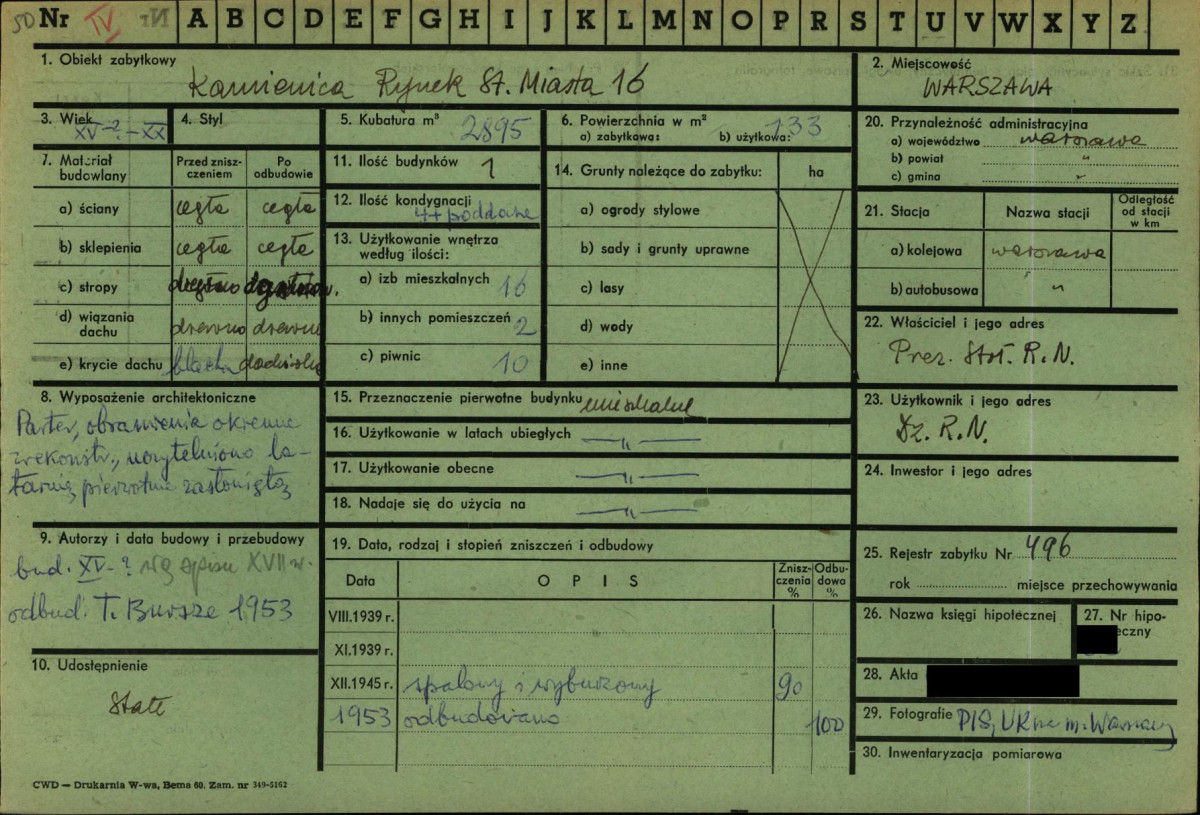 50 Nr IV A B C D E F G H I J K L M N O P R S T U V W X Y Z
1. Obiekt zabytkowy
Kamienica Rynek St. Miasta 16
2. Miejscowość
WARSZAWA
3. Wiek XV-?-XX
4. Styl
5. Kubatura m³ 2895
6. Powierzchnia w m²
a) zabytkowa: b) użytkowa: 133
7. Materiał budowlany
Przed zniszczeniem
Po odbudowie
a) ściany cegła cegła
b) sklepienia cegła cegła
c) stropy
d) wiązania dachu drewno drewno
e) krycie dachu blacha dachówka
8. Wyposażenie architektoniczne
Parter, obramienia okienne
zrekonstr., uczytelniono la-
tarnię pierwotnie zasłoniętą
9. Autorzy i data budowy i przebudowy
bud. XV-? wg opisu XVII w.
odbud. T. Bursze 1953
10. Udostępnienie
Stałe
CWD — Drukarnia W-wa, Bema 60. Zam. nr 349-5162
11. Ilość budynków 1
12. Ilość kondygnacji
4 + poddasze
13. Użytkowanie wnętrza
według ilości:
a) izb mieszkalnych 16
b) innych pomieszczeń 2
c) piwnic 10
14. Grunty należące do zabytku: ha
a) ogrody stylowe
b) sady i grunty uprawne
c) lasy
d) wody
e) inne
15. Przeznaczenie pierwotne budynku mieszkalne
16. Użytkowanie w latach ubiegłych —"—
17. Użytkowanie obecne —"—
18. Nadaje się do użycia na —"—
19. Data, rodzaj i stopień zniszczeń i odbudowy
Data OPIS Zniszczenia % Odbudowa %
VIII.1939 r.
XI.1939 r.
XII.1945 r. spalony i wyburzony 90
1953 odbudowano 100
20. Przynależność administracyjna
a) województwo warszawa
b) powiat "
c) gmina "
21. Stacja Nazwa stacji Odległość od stacji w km
a) kolejowa warszawa
b) autobusowa "
22. Właściciel i jego adres
Prez. Stoł. R.N.
23. Użytkownik i jego adres
Dz. R.N.
24. Inwestor i jego adres
25. Rejestr zabytku Nr 496
rok miejsce przechowywania
26. Nazwa księgi hipotecznej
27. Nr hipo-
eczny
28. Akta
29. Fotografie PIS, UKne m. Warszawy
30. Inwentaryzacja pomiarowa